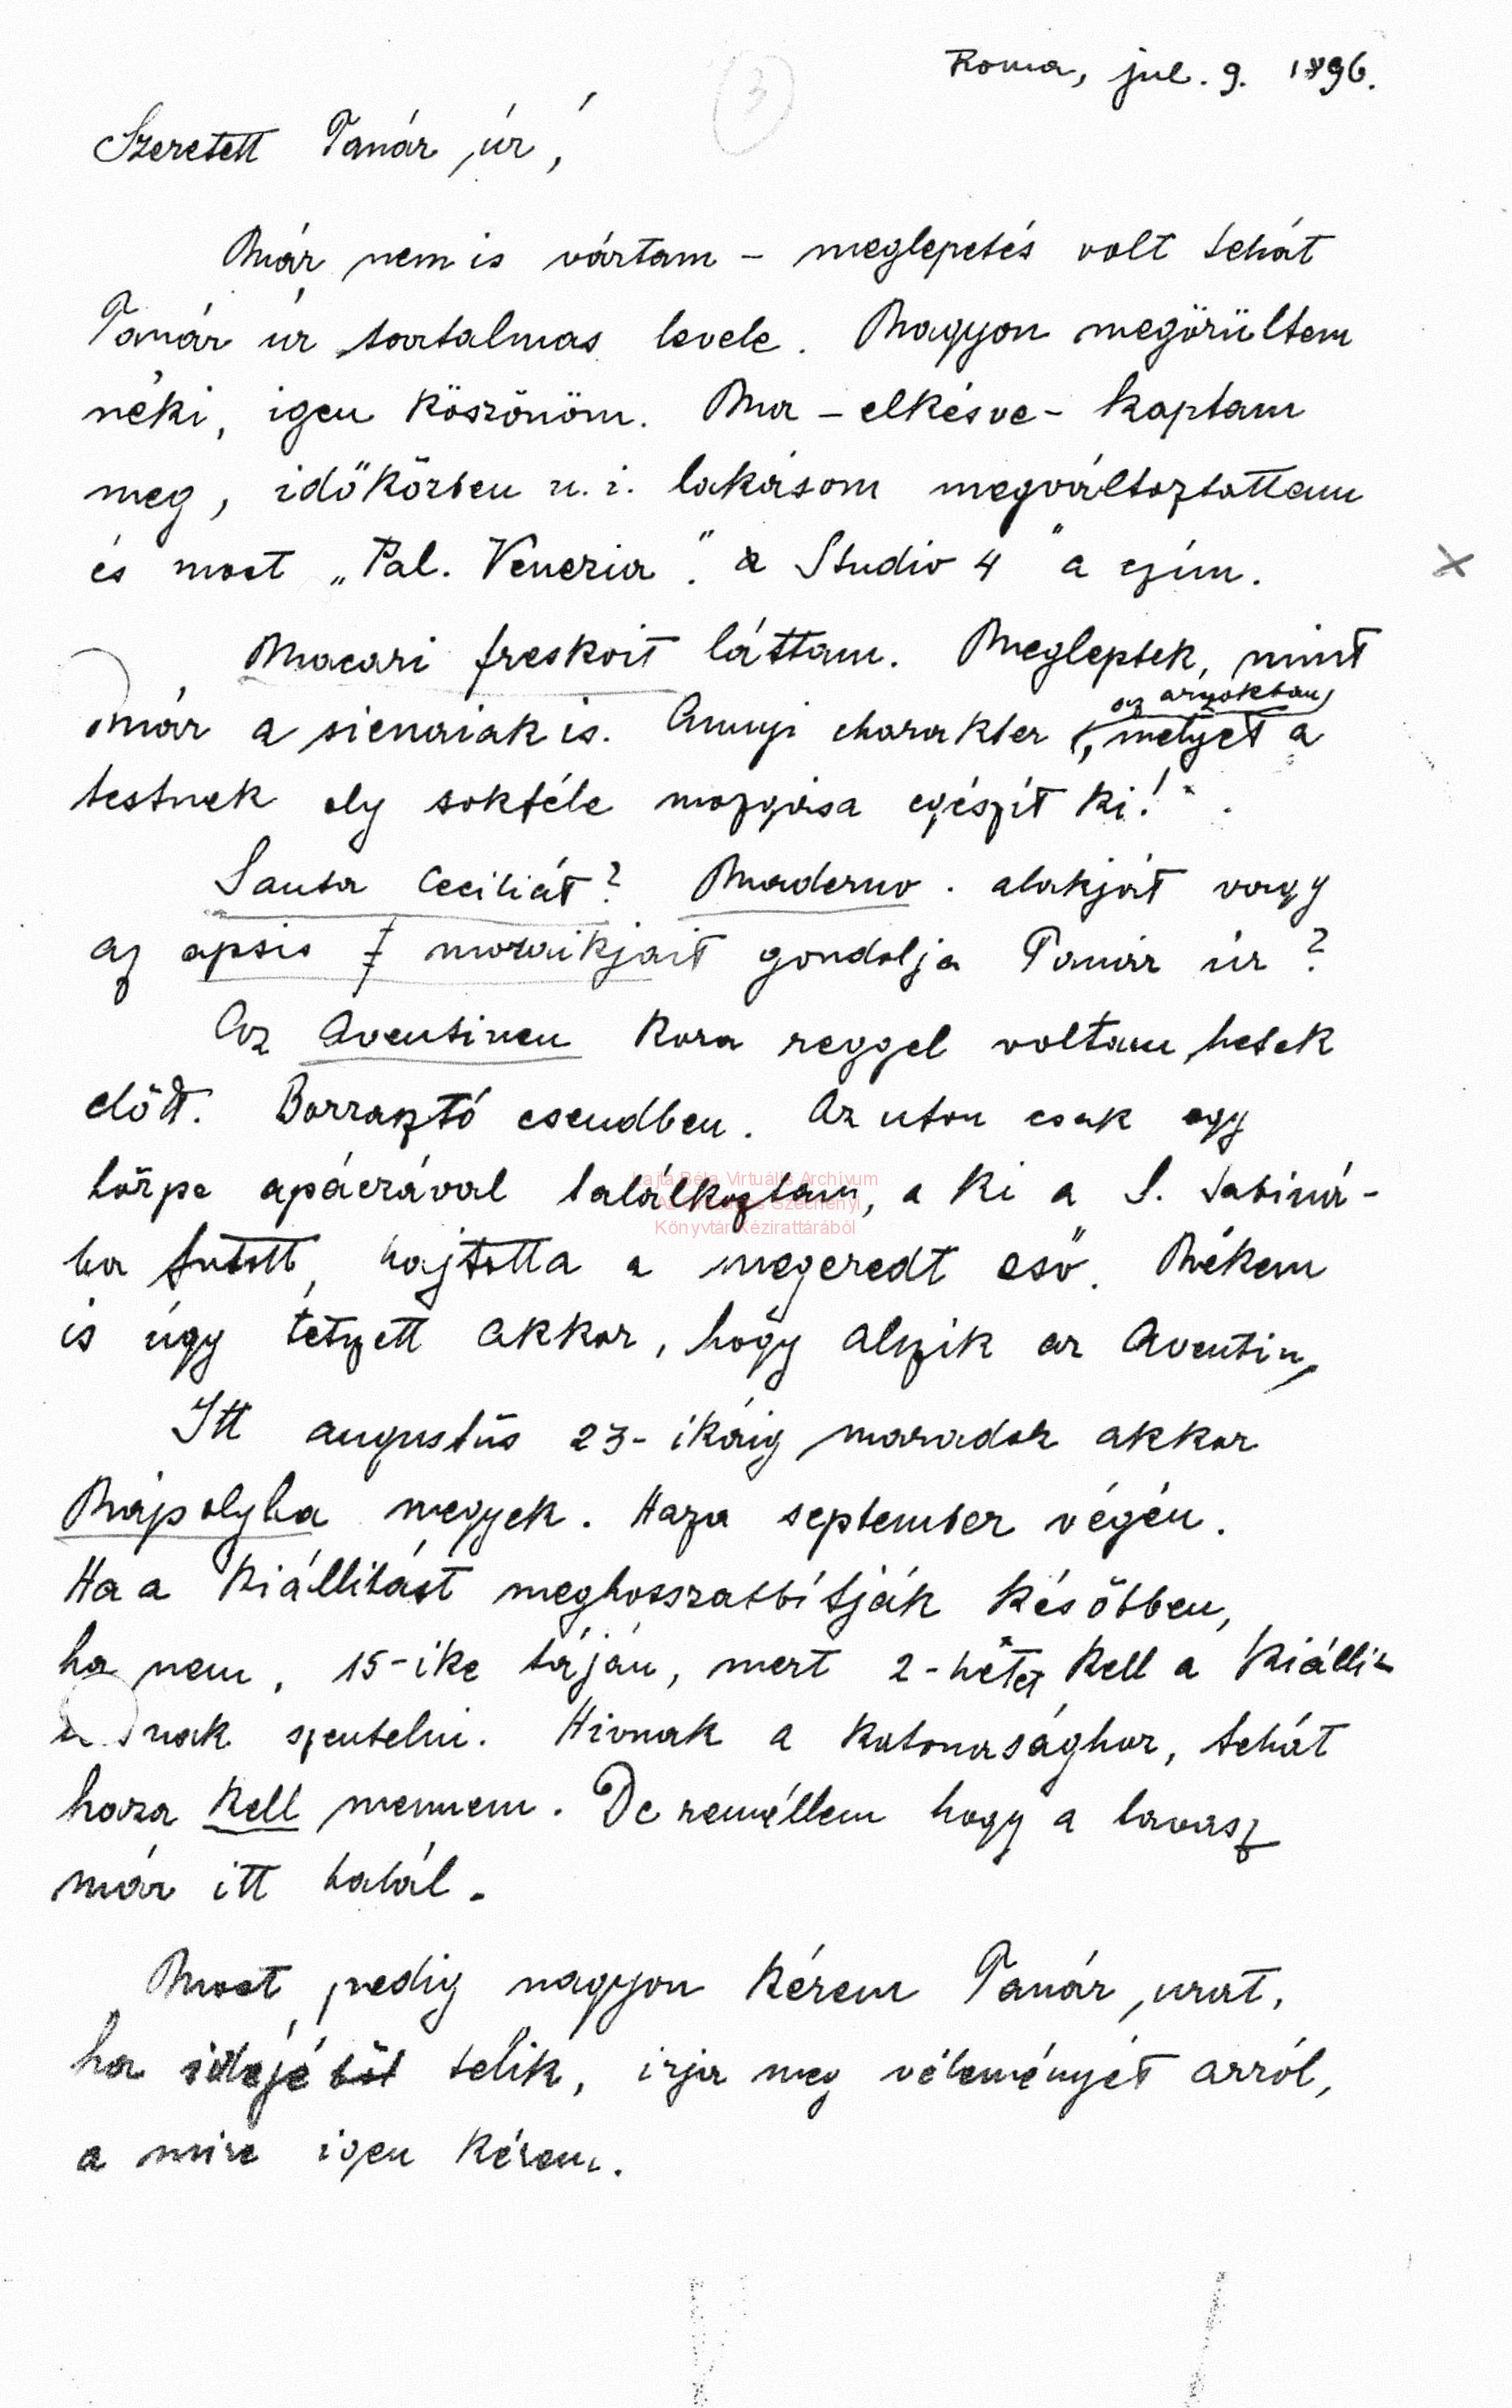 3
Roma, jul. 9. 1896.
Szeretett Tanár úr,
Már nem is vártam – meglepetés volt tehát
Tanár úr tartalmas levele. Nagyon megörültem
néki, igen köszönöm. Ma – elkésve – kaptam
meg, időközben u. i. lakásom megváltoztattam
és most „Pal. Venezia". a Studio 4" a czím.
Macari freskoit láttam. Megleptek, mint
már a sienaiak is. Annyi charakter az arczokban, melyet a
testnek oly sokféle mozgása egészít ki!
Santa Ceciliát? Maderno . alakját vagy
az apsis mozaikjait gondolja Tanár úr?
Az Aventinen kora reggel voltam, hetek
előtt. Borzasztó csendben. Az uton csak egy
törpe apáczával találkoztam, a ki a S. Sabiná-
ba futott, hajtotta a megeredt eső. Nékem
is úgy tetszett akkor, hogy alszik az Aventin,
Itt augustus 23-ikáig maradok akkor
Nápolyba megyek. Haza september végén.
Ha a kiállítást meghosszabbítják később en,
ha nem, 15-ike táján, mert 2-hetet kell a kiállí-
nak szentelni. Hivnak a katonasághoz, tehát
haza kell mennem. De remélem hogy a tavasz
már itt talál.
Most pedig nagyon kérem Tanár urat,
ha idejéből telik, irja meg véleményét arról,
a mire igen kérem.
Lajta Béla Virtuális Archívum
Az Országos Széchényi
Könyvtár Kézirattárából